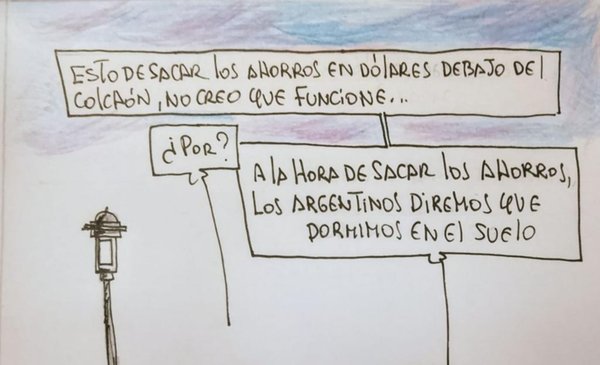 ESTO DE SACAR LOS AHORROS EN DÓLARES DEBAJO DEL
COLCHÓN, NO CREO QUE FUNCIONE...
¿POR?
A LA HORA DE SACAR LOS AHORROS,
LOS ARGENTINOS DIREMOS QUE
DORMIMOS EN EL SUELO